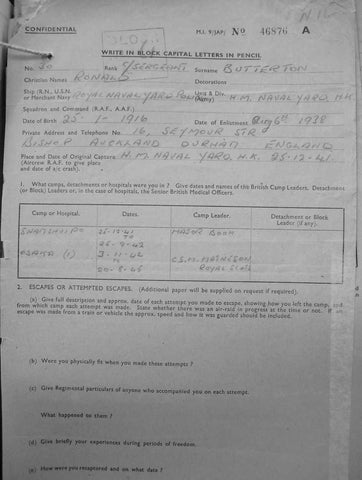 CONFIDENTIAL
M.I. 9/JAP/ No 46876 A
WRITE IN BLOCK CAPITAL LETTERS IN PENCIL
No. 30 Rank C/SERGEANT Surname BUTTERTON
Christian Names RONALD Decorations
Ship (R.N., U.S.N. or Merchant Navy ROYAL NAVAL YARD POLICE Unit & Div. (Army) H.M. NAVAL YARD H.K.
Squadron and Command (R.A.F., A.A.F.)
Date of Birth 25 - 1 - 1916 Date of Enlistment 6 1938
Private Address and Telephone No. 16, SEYMOUR STR
BISHOP AUCKLAND DURHAM ENGLAND
Place and Date of Original Capture H.M. NAVAL YARD, H.K. 25-12-41
(Aircrew R.A.F. to give place and date of a/c crash).
1. What camps, detachments or hospitals were you in? Give dates and names of the British Camp Leaders, Detachment
(or Block) Leaders or, in case of hospitals, the Senior British Medical Officers.
Camp or Hospital. Dates. Camp Leader. Detachment or Block Leader (if any).
SHAMSHUIPO 25-12-41 MAJOR BOON
TO
25-9-42
OSAKA (1) 3-11-42 C.S.M.
TO ROYAL SCOTS
20-8-45
2. ESCAPES OR ATTEMPTED ESCAPES. (Additional paper will be supplied on request if required).
(a) Give full description and approx. date of each attempt you made to escape, showing how you left the camp, and
from which camp each attempt was made. State whether there was an air-raid in progress at the time or not. If an
escape was made from a train or vehicle the approx. speed and how it was guarded should be included.
(b) Were you physically fit when you made these attempts ?
(c) Give Regimental particulars of anyone who accompanied you on each attempt.
What happened to them ?
(d) Give briefly your experiences during periods of freedom.
(e) How were you recaptured and on what date ?